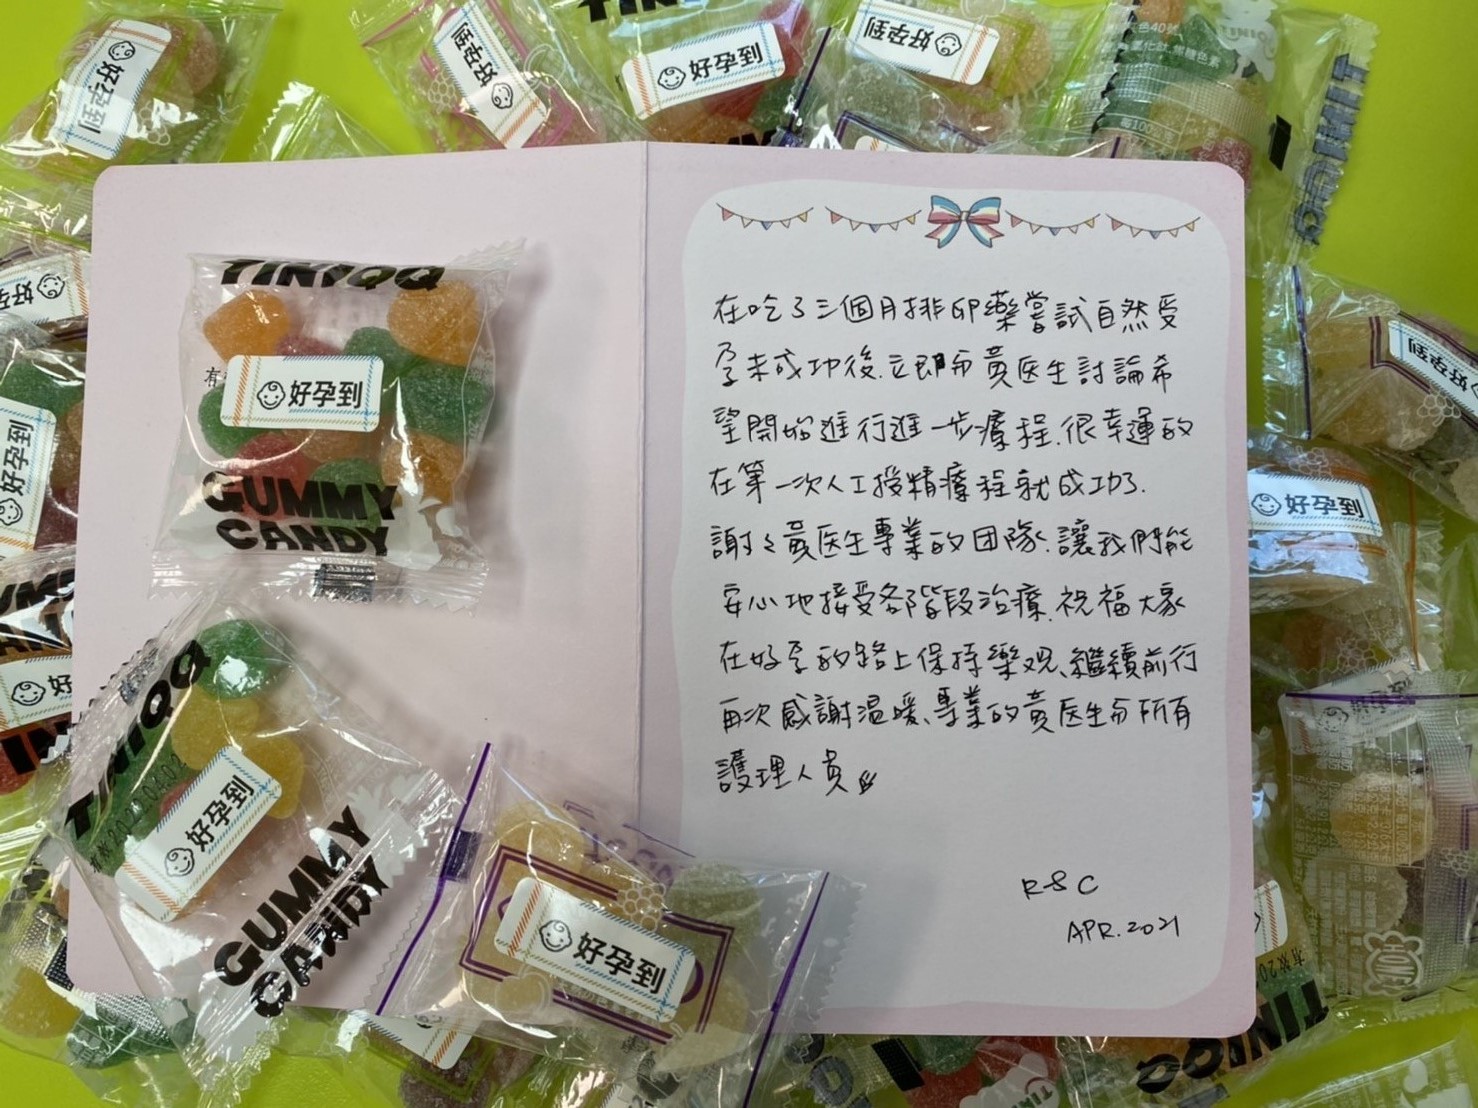 好孕到
好孕到
好孕到
好孕到
TINIQQ
好孕到
GUMMY
CANDY
TINIQQ
好孕到
GUMMY
CANDY
好孕到
在吃了三個月排卵藥嘗試自然受
孕未成功後.立即與黃医生討論希
望開始進行進一步療程.很幸運的
在第一次人工授精療程就成功了.
謝々黃医生專業的团隊.讓我們能
安心地接受各階段治療.祝福大家
在好孕的路上保持樂观、繼續前行
再次感謝温暖、專業的黃医生与所有
護理人員
RSC
APR.2021
好孕到
好孕到
好孕到
好孕到
TINIQQ